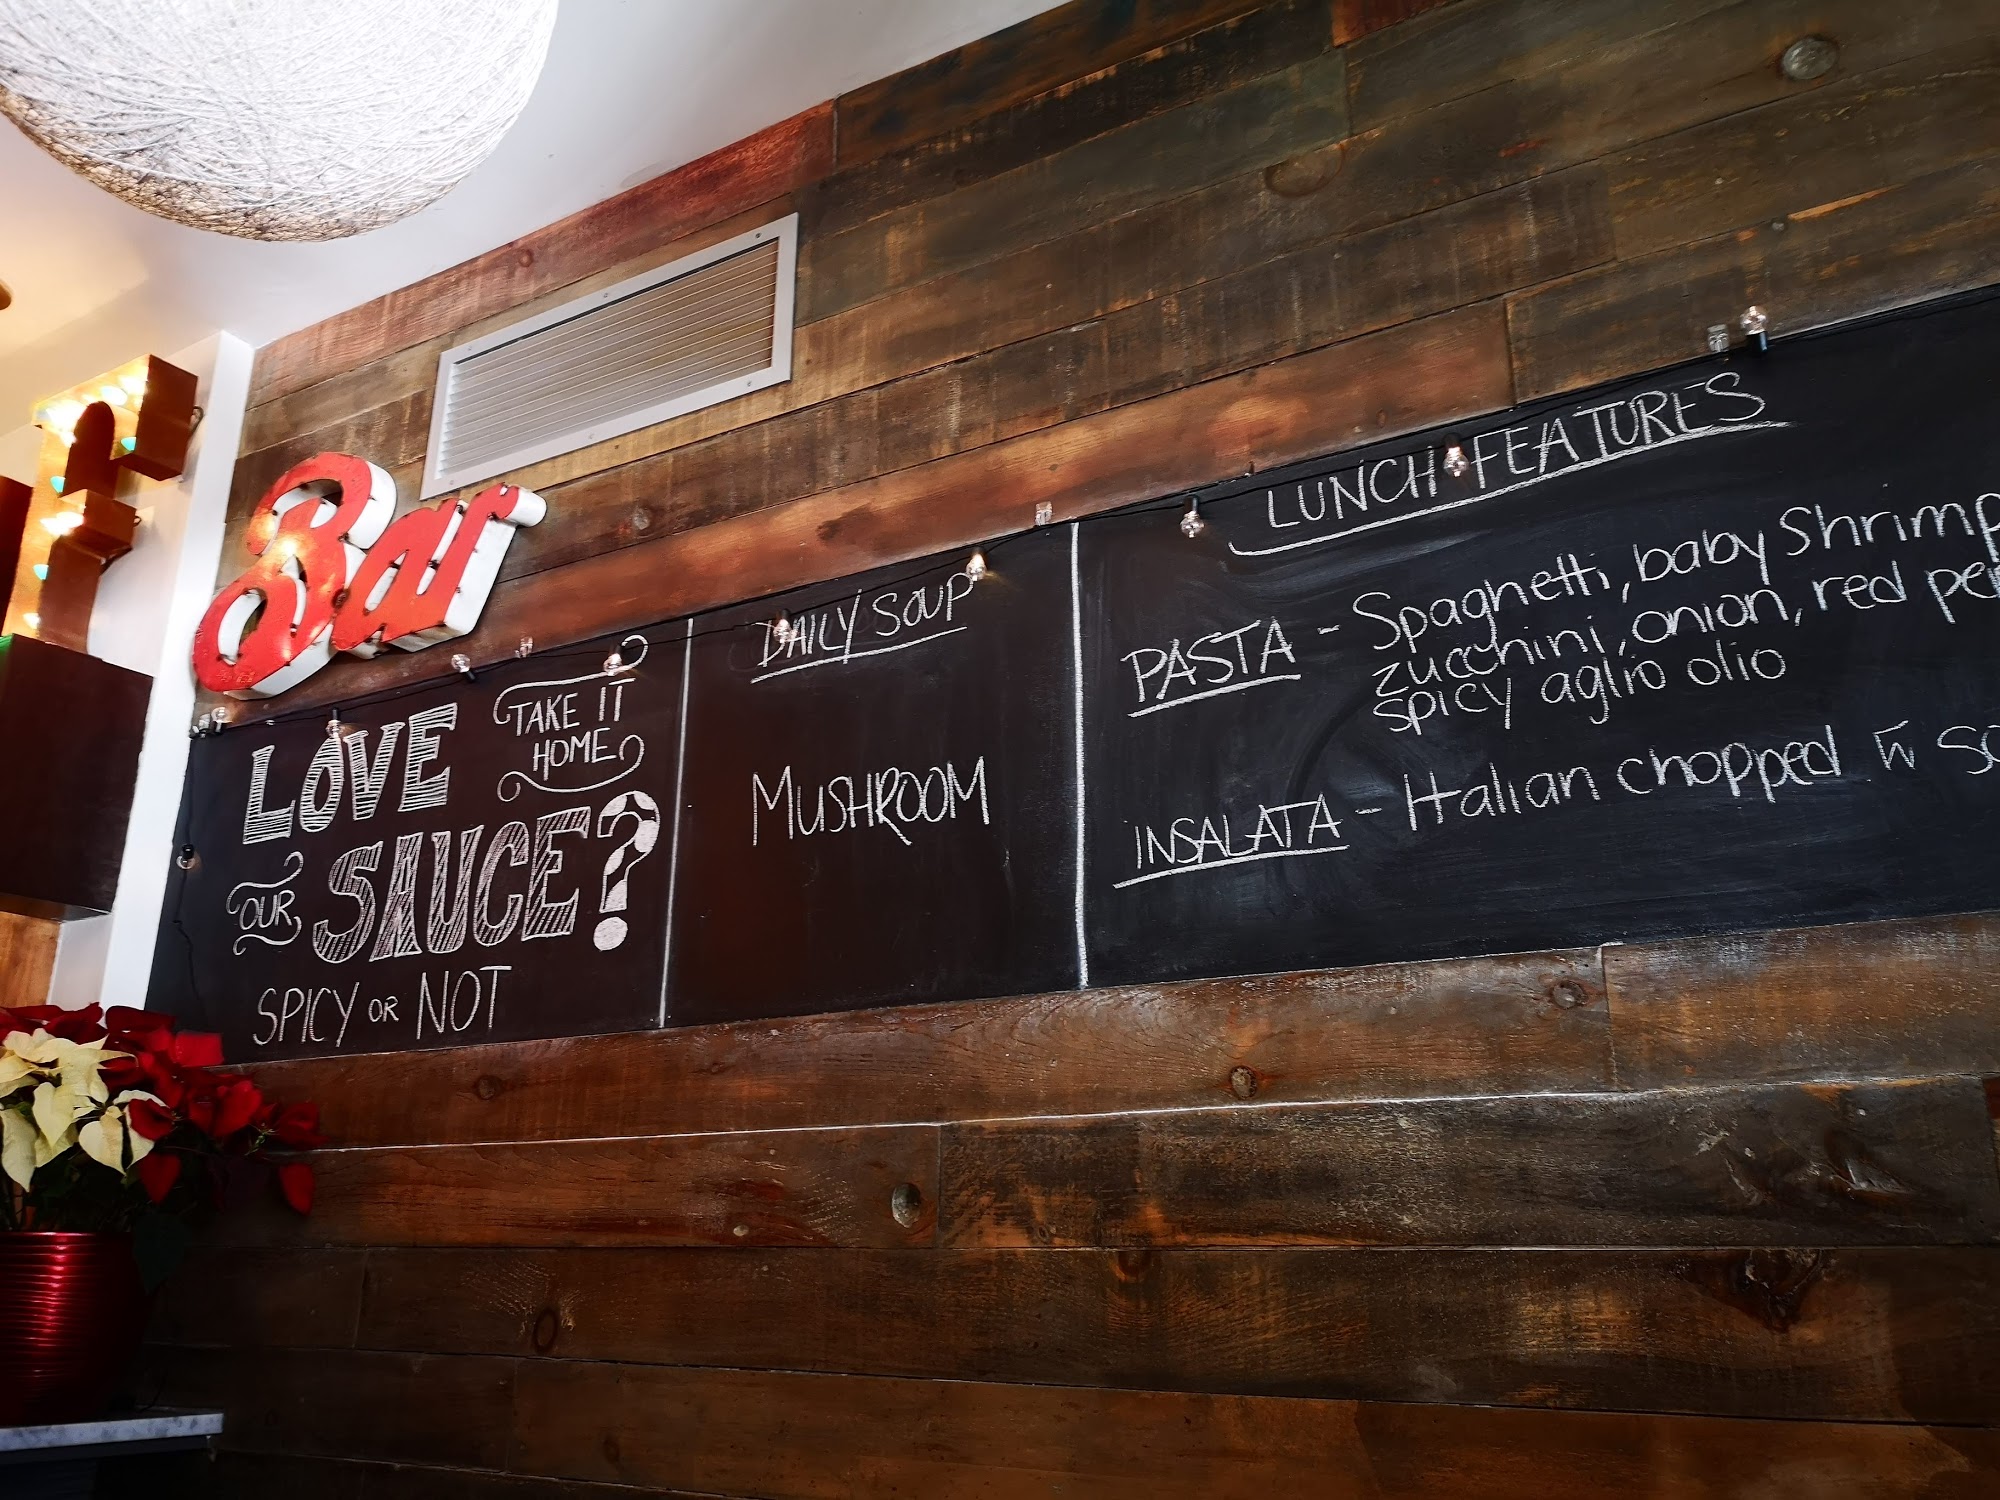 Bar
LOVE
TAKE IT
HOME
OUR SAUCE?
SPICY OR NOT
DAILY SOUP
MUSHROOM
LUNCH FEATURES
PASTA - Spaghetti, baby shrimp
zucchini, onion, red
spicy aglio olio
INSALATA - Italian chopped w